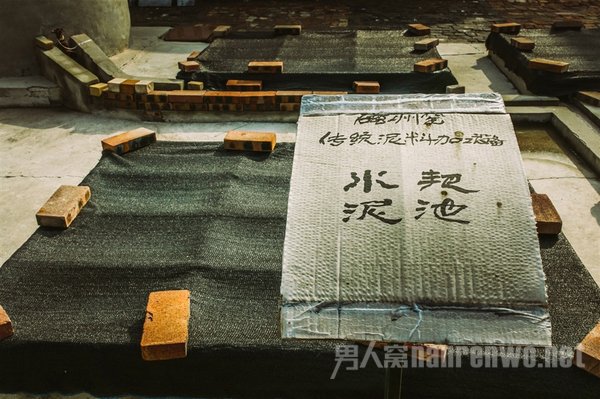 磁州窑
传统泥料加工
水 耙
泥 池
男人窝nanrenwo.net